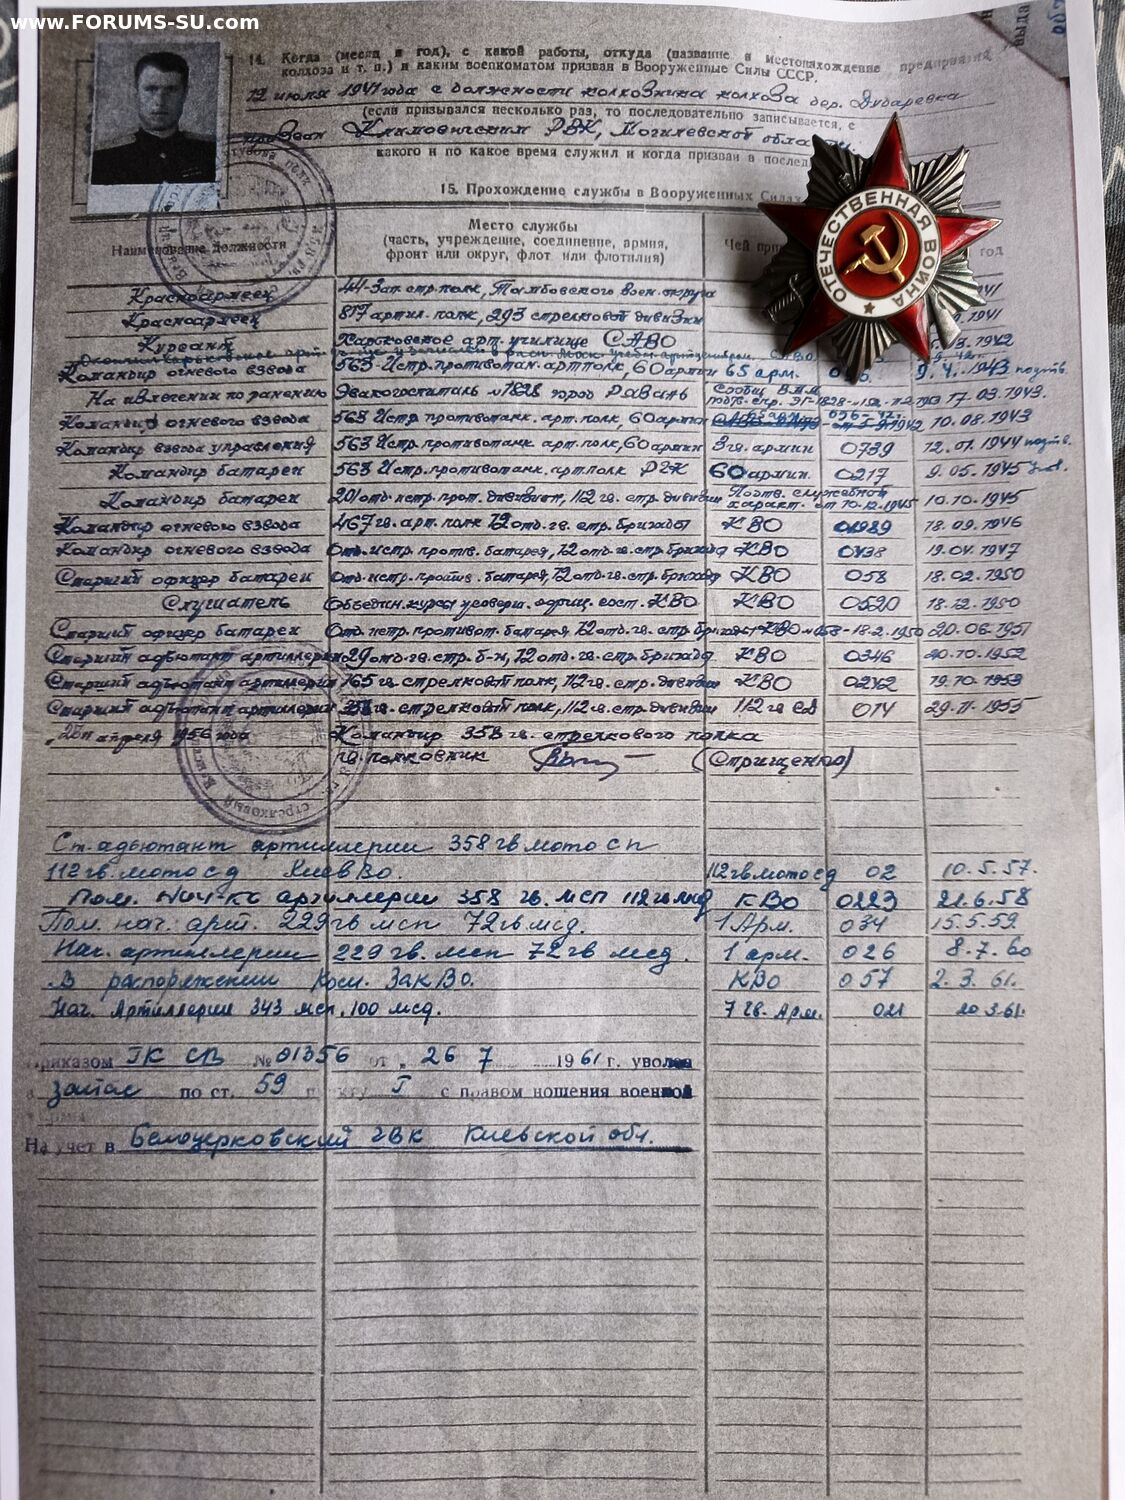 www.FORUMS-SU.com
14. Когда (месяц и год), с какой работы, откуда (название и местонахождение предприятия,
колхоза и т. п.) и каким военкоматом призван в Вооруженные Силы СССР.
12 июля 1941 года с должности колхозника колхоза дер. Дубаревка
(если призывался несколько раз, то последовательно записывается, с
призван Климовичским РВК, Могилевской области.
какого и по какое время служил и когда призван в послед
15. Прохождение службы в Вооруженных Силах
ОТЕЧЕСТВЕННАЯ ВОЙНА
Наименование должности
Место службы
(часть, учреждение, соединение, армия,
фронт или округ, флот или флотилия)
Чей при
год
Красноармеец 44-Зап. стр. полк, Тамбовского воен. округа
Красноармеец 817 артил. полк, 293 стрелковой дивизии 1941
Курсант Харьковское арт. училище САВО 1942
Командир огневого взвода 563-Истр. противотан. артполк, 60 армии 65 арм. 9.4.1943 подтв.
На излечении по ранению Эвакогоспиталь №1828 город 17.03.1943.
Командир огневого взвода 563 Истр. противотанк. арт. полк, 60 армии 10.08.1943
Командир взвода управления 563 Истр. противотанк. арт. полк, 60 армии 3 гв. армии 0739 12.01.1944 подтв.
Командир батареи 563 Истр. противотанк. арт. полк РГК 60 армии. 0217 9.05.1945
Командир батареи 201 отд. истр. прот. дивизион, 112 гв. стр. дивизии Подтв. служебной характ. от 10.12.1945 10.10.1945
Командир огневого взвода 467 гв. арт. полк 12 отд. гв. стр. бригады КВО 01989 18.09.1946
Командир огневого взвода Отд. истр. против. батарея, 12 отд. гв. стр. бригады КВО 0438 19.04.1947
Старший офицер батареи Отд. истр. против. батарея, 12 отд. гв. стр. бригады КВО 058 18.02.1950
Слушатель Объедин. курсы усоверш. офиц. сост. КВО КВО 0520 18.12.1950
Старший офицер батареи Отд. истр. противот. батарея 12 отд. гв. стр. бригады КВО №058-18.2.1950 20.06.1951
Старший адъютант артиллерии 29 отд. гв. стр. б-н, 12 отд. гв. стр. бригады КВО 0346 20.10.1952
Старший адъютант артиллерии 165 гв. стрелковый полк, 112 гв. стр. дивизии КВО 0262 19.10.1953
Старший адъютант артиллерии 358 гв. стрелковый полк, 112 гв. стр. дивизии 112 гв сд 014 29.11.1955
апреля 1956 года Командир 358 гв. стрелкового полка
гв. полковник (Стрищенко)
Ст. адъютант артиллерии 358 гв мото сп
112 гв. мото сд КиевВО. 112 гв мото сд 02 10.5.57.
Пом. Нач-ка артиллерии 358 гв. мсп 112 гв мсд КВО 0223 21.6.58
Пом. нач. арт. 229 гв мсп 72 гв мсд. 1 Арм. 034 15.5.59.
Нач. артиллерии 229 гв. мсп 72 гв мсд. 1 арм. 026 8.7.60
В распоряжении Ком. ЗакВО. КВО 057 2.3.61.
Нач. Артиллерии 343 мсп, 100 мсд. 7 гв. Арм. 021 20.3.61.
Приказом ГК СВ №01356 от 26 7 1961 г. уволен
в запас по ст. 59 пункту Г с правом ношения военной
На учет в Белоцерковский ГВК Киевской обл.